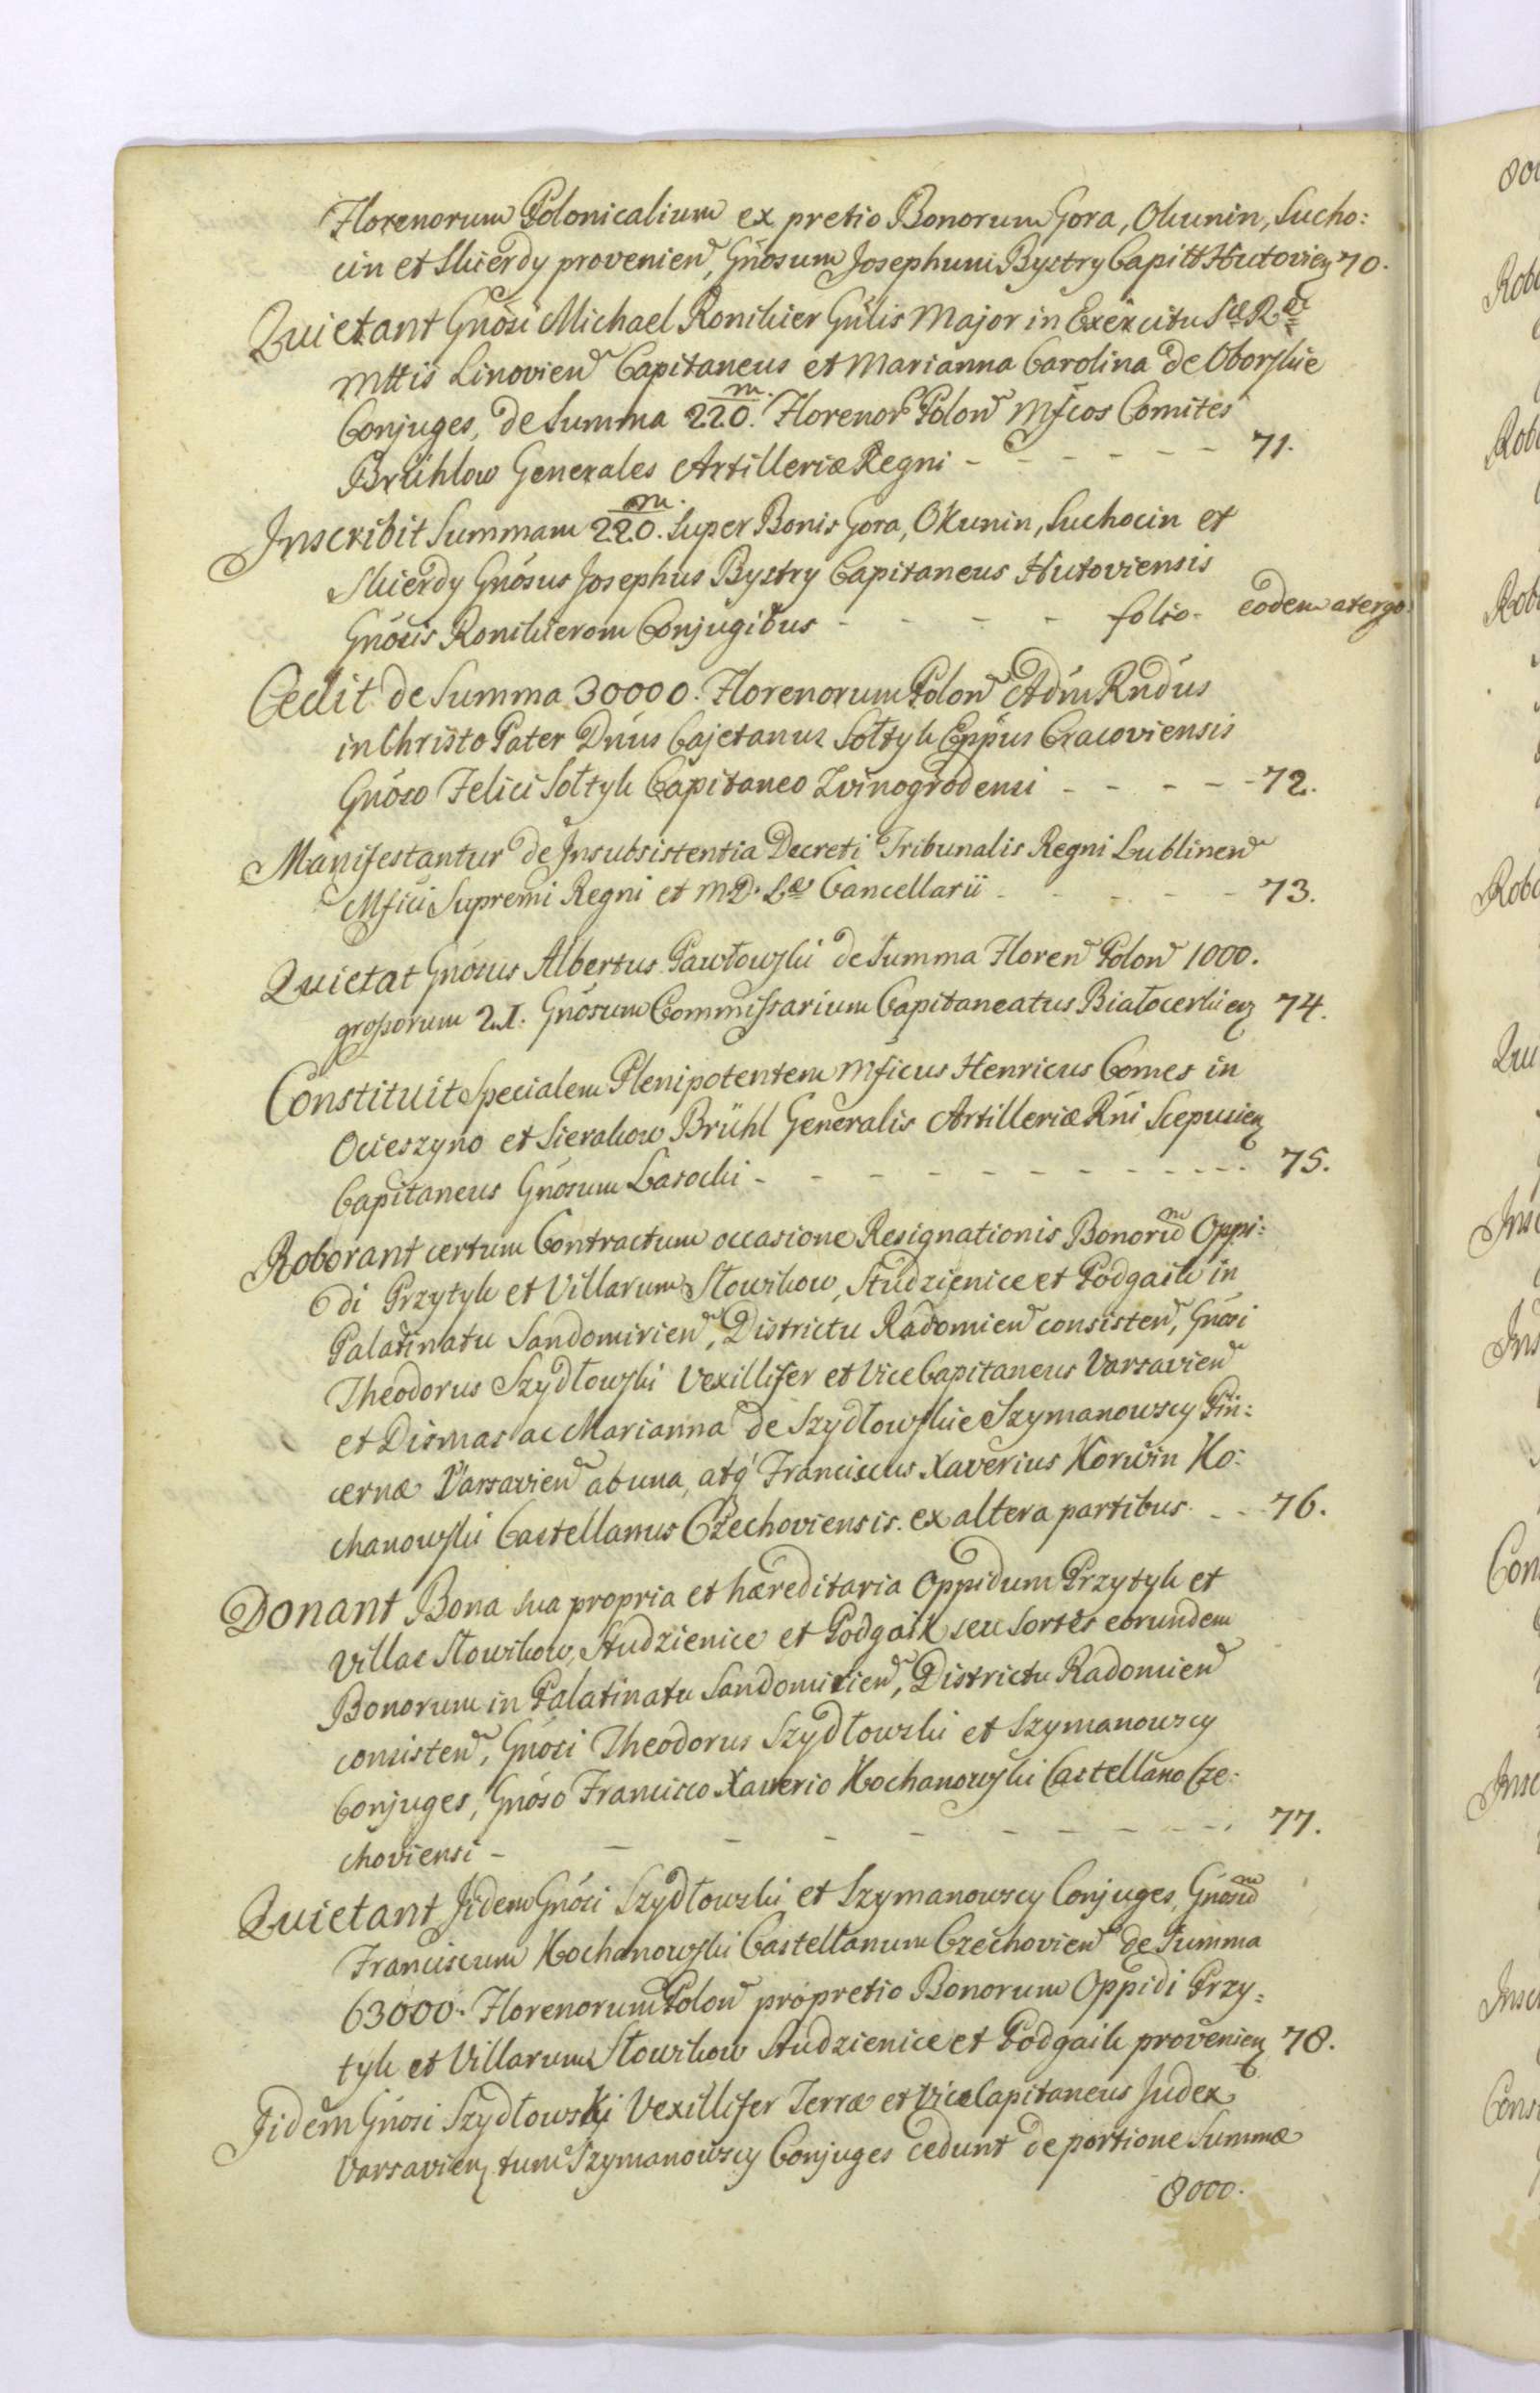 Florenorum Polonicalium ex pretio Bonorum Gora, Okunin, Sucho:
cin et Skierdy provenien, Gnosum Josephum Bystry Capitt Hutovien 70.
Quietant Gnosi Michael Ronikier Gnlis Major in Exercitu Sæ Ræ
Mttis Linovien Capitaneus et Marianna Carolina de Oborskie
Conjuges, de Summa 220.m Florenor Polon Mfcos Comites
Brühlow Generales Artilleriæ Regni - - - - - - - 71.
Inscribit Summam 220.m Super Bonis Gora, Okunin, Suchocin et
Skierdy Gnosus Josephus Bystry Capitaneus Hutoviensis
Gnosis Ronikierom Conjugibus - - - - folio. eodem atergo
Cedit de Summa 30000. Florenorum Polon Adm Rndus
in Christo Pater Dnus Cajetanus Sołtyk Eppus Cracoviensis
Gnoso Felici Sołtyk Capitaneo Zvinogrodensi - - - - - 72.
Manifestantur de Insubsistentia Decreti Tribunalis Regni Lublinen
Mfici Supremi Regni et M.D. Læ Cancellarii - - - - - 73.
Quietat Gnosus Albertus Pawłowski de Summa Floren Polon 1000.
grossorum 21. Gnosum Commissarium Capitaneatus Białocerkien 74.
Constituit Specialem Plenipotentem Mficus Henricus Comes in
Ocieszyno et Sierakow Brühl Generalis Artilleriæ Rni Scepusien
Capitaneus Gnosum Lasocki - - - - - - - - - - 75.
Roborant certum Contractum occasione Resignationis Bonorum Oppi:
di Przytyk et Villarum Słowikow, Studzienice et Podgaik in
Palatinatu Sandomirien, Districtu Radomien consisten, Gnosi
Theodorus Szydłowski Vexillifer et Vice Capitaneus Varsavien
et Dismas ac Marianna de Szydłowskie Szymanowscy Pin:
cernæ Varsavien ab una, atq Franciscus Xaverius Korwin Ko:
chanowski Castellanus Czechoviensis ex altera partibus. - - 76.
Donant Bona sua propria et hæreditaria Oppidum Przytyk et
Villas Słowikow, Studzienice et Podgaik seu sortes eorundem
Bonorum in Palatinatu Sandomirien, Districtu Radomien
consisten, Gnosi Theodorus Szydłowski et Szymanowscy
Conjuges, Gnoso Francisco Xaverio Kochanowski Castellano Cze:
choviensi - - - - - - - - - - 77.
Quietant Jidem Gnosi Szydłowski et Szymanowscy Conjuges, Gnosum
Franciscum Kochanowski Castellanum Czechovien de Summa
63000. Florenorum Polon pro pretio Bonorum Oppidi Przy:
tyk et Villarum Słowikow Studzienice et Podgaik provenien 78.
Jidem Gnosi Szydłowski Vexillifer Terræ et Vice Capitaneus Judex
Varsavien, tum Szymanowscy Conjuges cedunt de portione Summæ
8000.